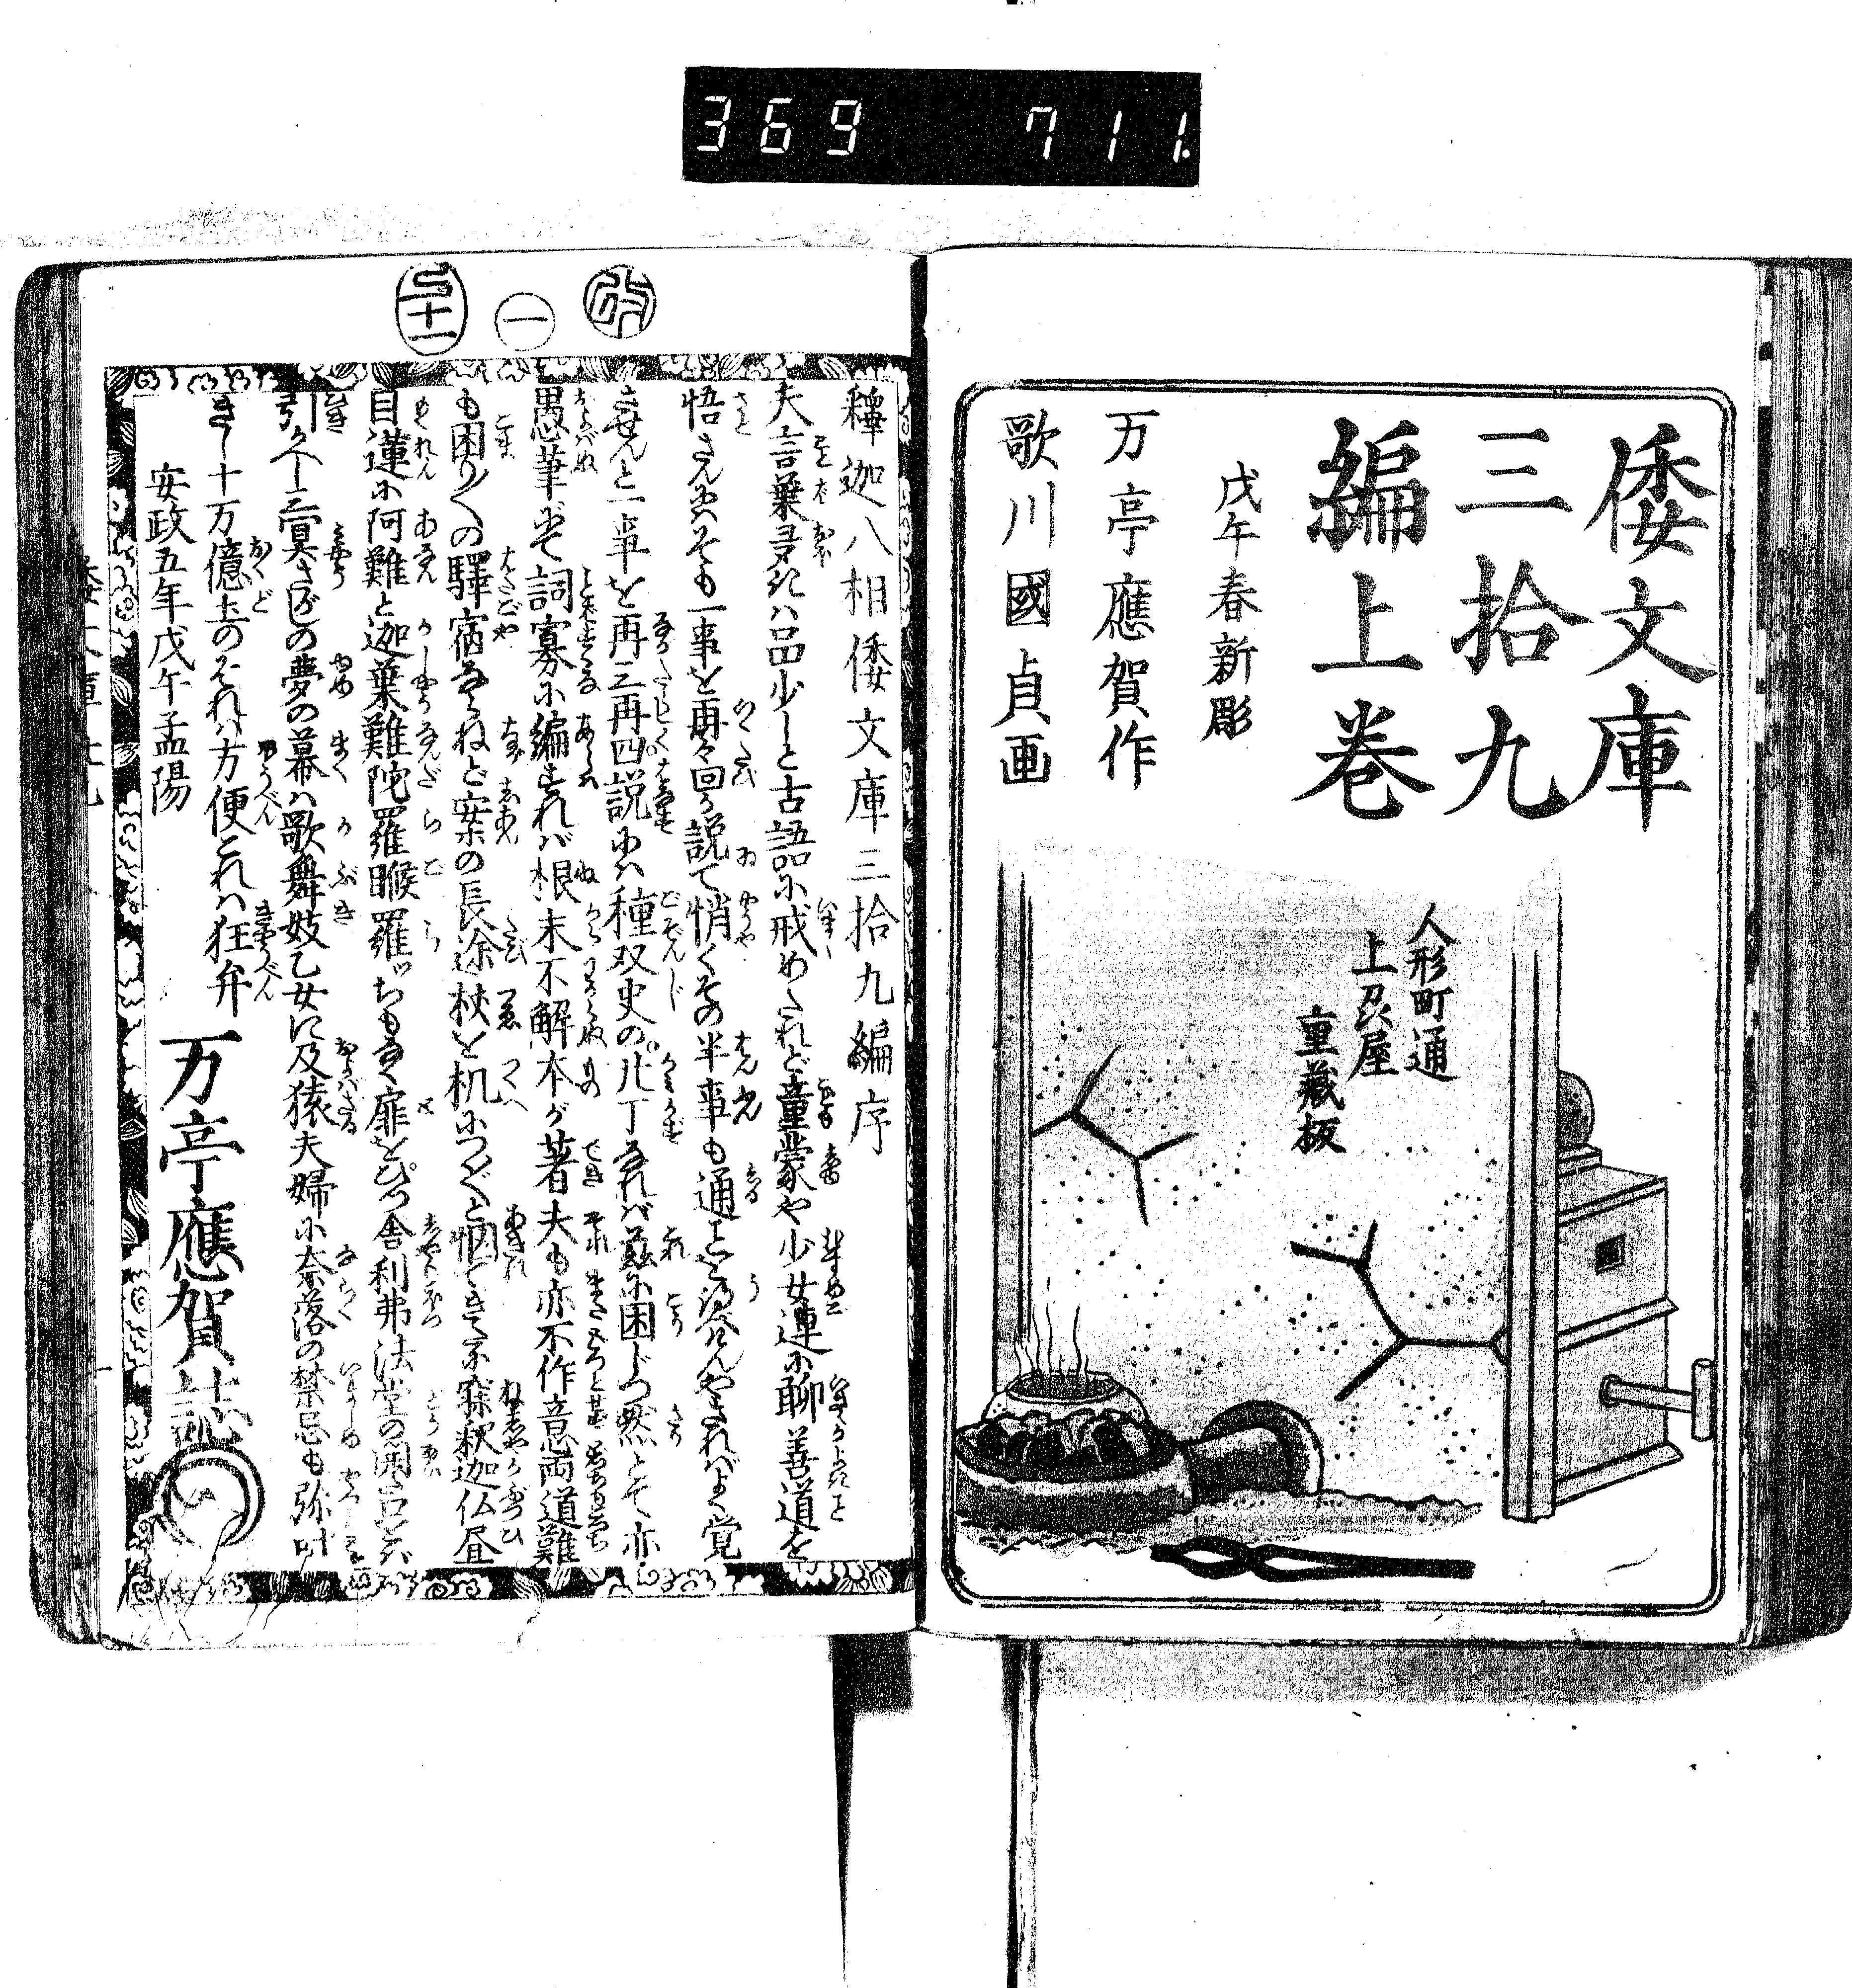 369 711
倭文庫
三拾九
編上巻
戊午春新彫
万亭應賀作
歌川國貞画
人形町通
上州屋
重藏板
改
一
巳十一
釋迦八相倭文庫三拾九編序
夫言葉多きハ品少しと古語に戒めたれど童蒙や少女連に聊善道を
悟さんにハそも一事を再々回り説て悄くその半事も通じ得んやされバよく覚
させんと一事を再三再四説にハ種双史の丁なれバ茲に困じつ然とて亦
愚筆ぞて詞寡に編されバ根末不解本が著夫も亦不作意両道難
も困りくの驛宿ならねど案の長途杖と机につくぐと惘てきて不寐釈迦仏昼
目蓮に阿難と迦葉難陀羅睺羅ッちもなく扉をぴつ舎利弗法堂の開口バ
引く夢の幕ハ歌舞妓乙女に及猿夫婦に奈落の禁忌も弥
きし十万億土のそれハ方便これハ狂弁
安政五年戊午孟陽
万亭應賀誌